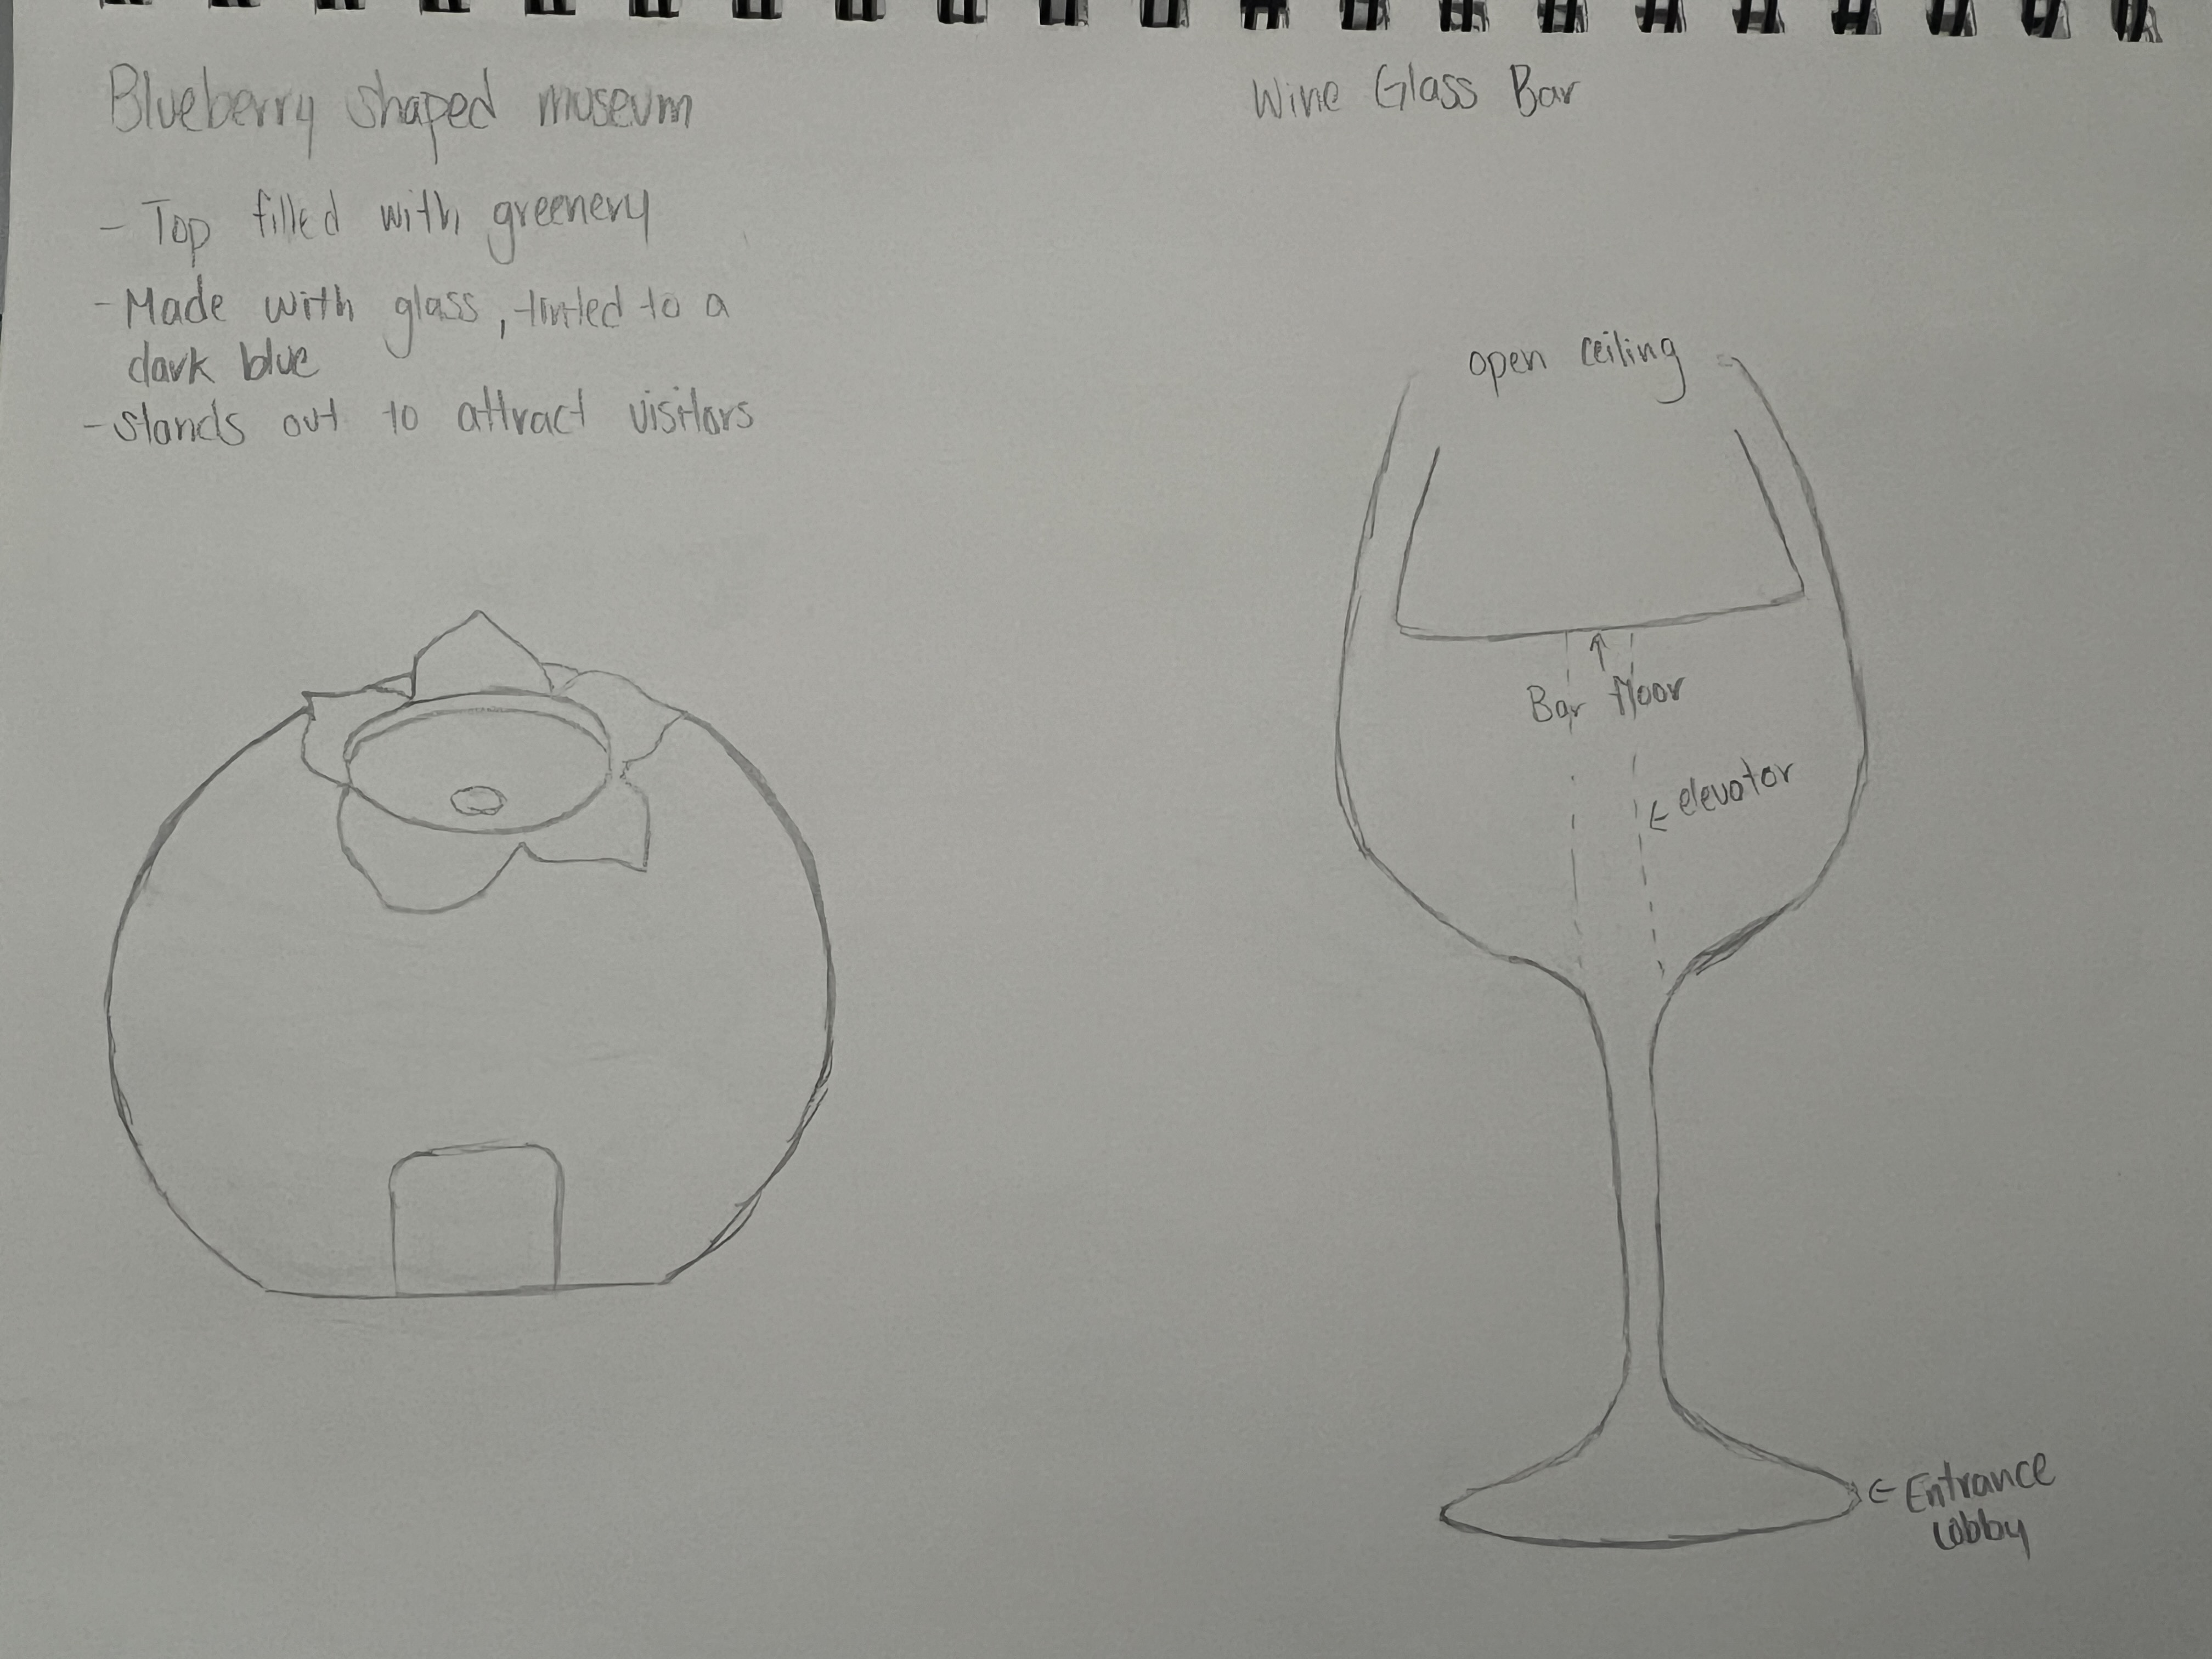 Blueberry shaped museum
- Top filled with greenery
- Made with glass, tinted to a
dark blue
- stands out to attract visitors
Wine Glass Bar
open ceiling
Bar floor
← elevator
← Entrance
lobby